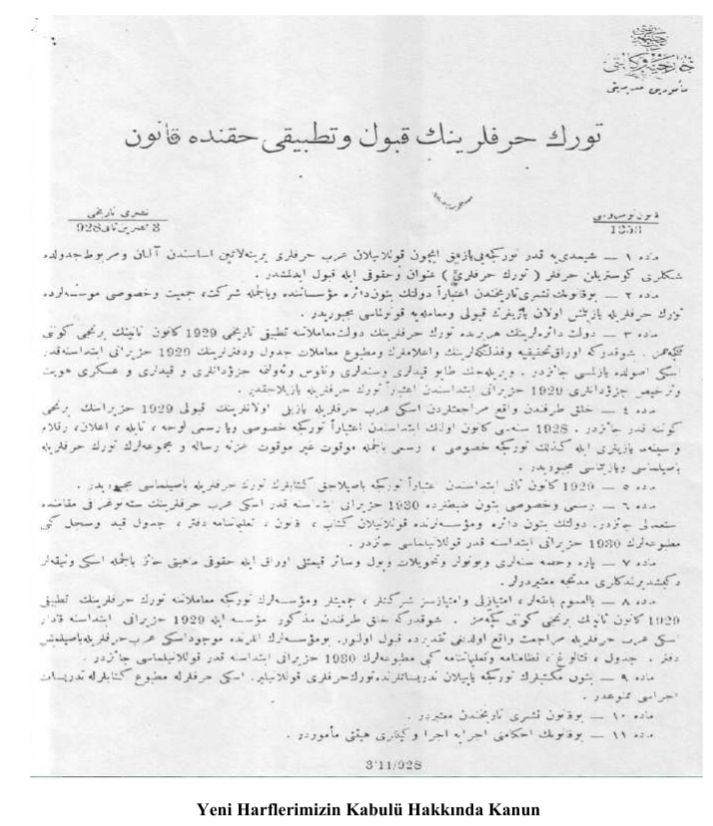 خارجیه وکالتی
مأمورین مدیریتی
تورك حرفلرینك قبول وتطبیقی حقنده قانون
قانون نومروسی
1353
نشری تاریخی
3 تشرین ثانی 928
ماده ١ — شیمدی‌یه قدر تورکجه‌یی یازمق ایچون قوللانیلان عرب حرفلری یرینه لاتین اساسندن آلنان ومربوط جدولده
شکللری کوستریلن حرفلر ( تورك حرفلری ) عنوان وحقوقی ایله قبول ایدلمشدر.
ماده ٢ — بوقانونك نشری تاریخندن اعتباراً دولتك بتون دائره ومؤسساتنده وبالجمله شرکت، جمعیت وخصوصی مؤسسه‌لرده
تورك حرفلریله یازیلمش اولان یازیلرك قبولی ومعامله‌یه قونولماسی مجبوریدر.
ماده ٣ — دولت دائره‌لرینك هربرنده تورك حرفلرینك دولت معاملاتنه تطبیقی تاریخی 1929 کانون ثانینك برنجی کوننی
کچه‌مز. شوقدرکه اوراق تحقیقیه وفذلکه‌لرینك واعلاملرك ومطبوع معاملات جدول ودفترلرینك 1929 حزیرانی ابتداسنه قدر
اسکی اصولده یازلمسی جائزدر. ویریله‌جك طاپو قیدلری وسندلری ونفوس واولنمه جزدانلری و قیدلری و عسکری هویت
وترخیص جزدانلری 1929 حزیرانی ابتداسندن اعتباراً تورك حرفلریله یازیلاجقدر.
ماده ٤ — خلق طرفندن واقع مراجعتلردن اسکی عرب حرفلریله یازیلی اولانلرینك قبولی 1929 حزیرانك برنجی
کوننه قدر جائزدر. 1928 سنه‌سی کانون اولنك ابتداسندن اعتباراً تورکجه خصوصی ویا رسمی لوحه، تابلا، اعلان، رقلام
و سینما یازیلری ایله کذلك تورکجه خصوصی، رسمی بالجمله موقوت غیر موقوت غزته رساله و مجموعه‌لرك تورك حرفلریله
باصیلماسی ویازیلماسی مجبوریدر.
ماده ٥ — 1929 کانون ثانی ابتداسندن اعتباراً تورکجه باصیلاجق کتابلرك تورك حرفلریله باصیلماسی مجبوریدر.
ماده ٦ — رسمی وخصوصی بتون ضبطلرده 1930 حزیرانی ابتداسنه قدر اسکی عرب حرفلرینك ستنوغرافی مقامنده
استعمالی جائزدر. دولتك بتون دائره ومؤسسه‌لرنده قوللانیلان کتاب، قانون، تعلیماتنامه، دفتر، جدول قید وسجل کبی
مطبوعه‌لرك 1930 حزیرانی ابتداسنه قدر قوللانیلماسی جائزدر.
ماده ٧ — پاره وحصه سندلری وبونولر وتحویلات وپول وسائر قیمتلی اوراق ایله حقوقی ماهیتی حائز بالجمله اسکی وثیقه‌لر
دکیشدیرلمدکلری مدتجه معتبردرلر.
ماده ٨ — بالعموم بانقه‌لر، امتیازلی وامتیازسز شرکتلر، جمعیتلر ومؤسسه‌لرك تورکجه معاملاتنه تورك حرفلرینك تطبیقی
1929 کانون ثانینك برنجی کوننی کچه‌مز. شوقدرکه خلق طرفندن مذکور مؤسسه‌لره 1929 حزیرانی ابتداسنه قادار
اسکی عرب حرفلریله مراجعت واقع اولدیغی تقدیرده قبول اولنور. بومؤسسه‌لرك الیرنده موجود اسکی عرب حرفلریله باصیلمش
دفتر، جدول، قتالوغ، نظامنامه وتعلیماتنامه کبی مطبوعه‌لرك 1930 حزیرانی ابتداسنه قدر قوللانیلماسی جائزدر.
ماده ٩ — بتون مکتبلرك تورکجه یاپیلان تدریساتلرنده تورك حرفلری قوللانیلیر. اسکی حرفلرله مطبوع کتابلرله تدریسات
اجراسی ممنوعدر.
ماده ١٠ — بوقانون نشری تاریخندن معتبردر.
ماده ١١ — بوقانونك احکامنی اجرایه اجرا وکیللری هیئتی مأموردر.
3/11/928
Yeni Harflerimizin Kabulü Hakkında Kanun